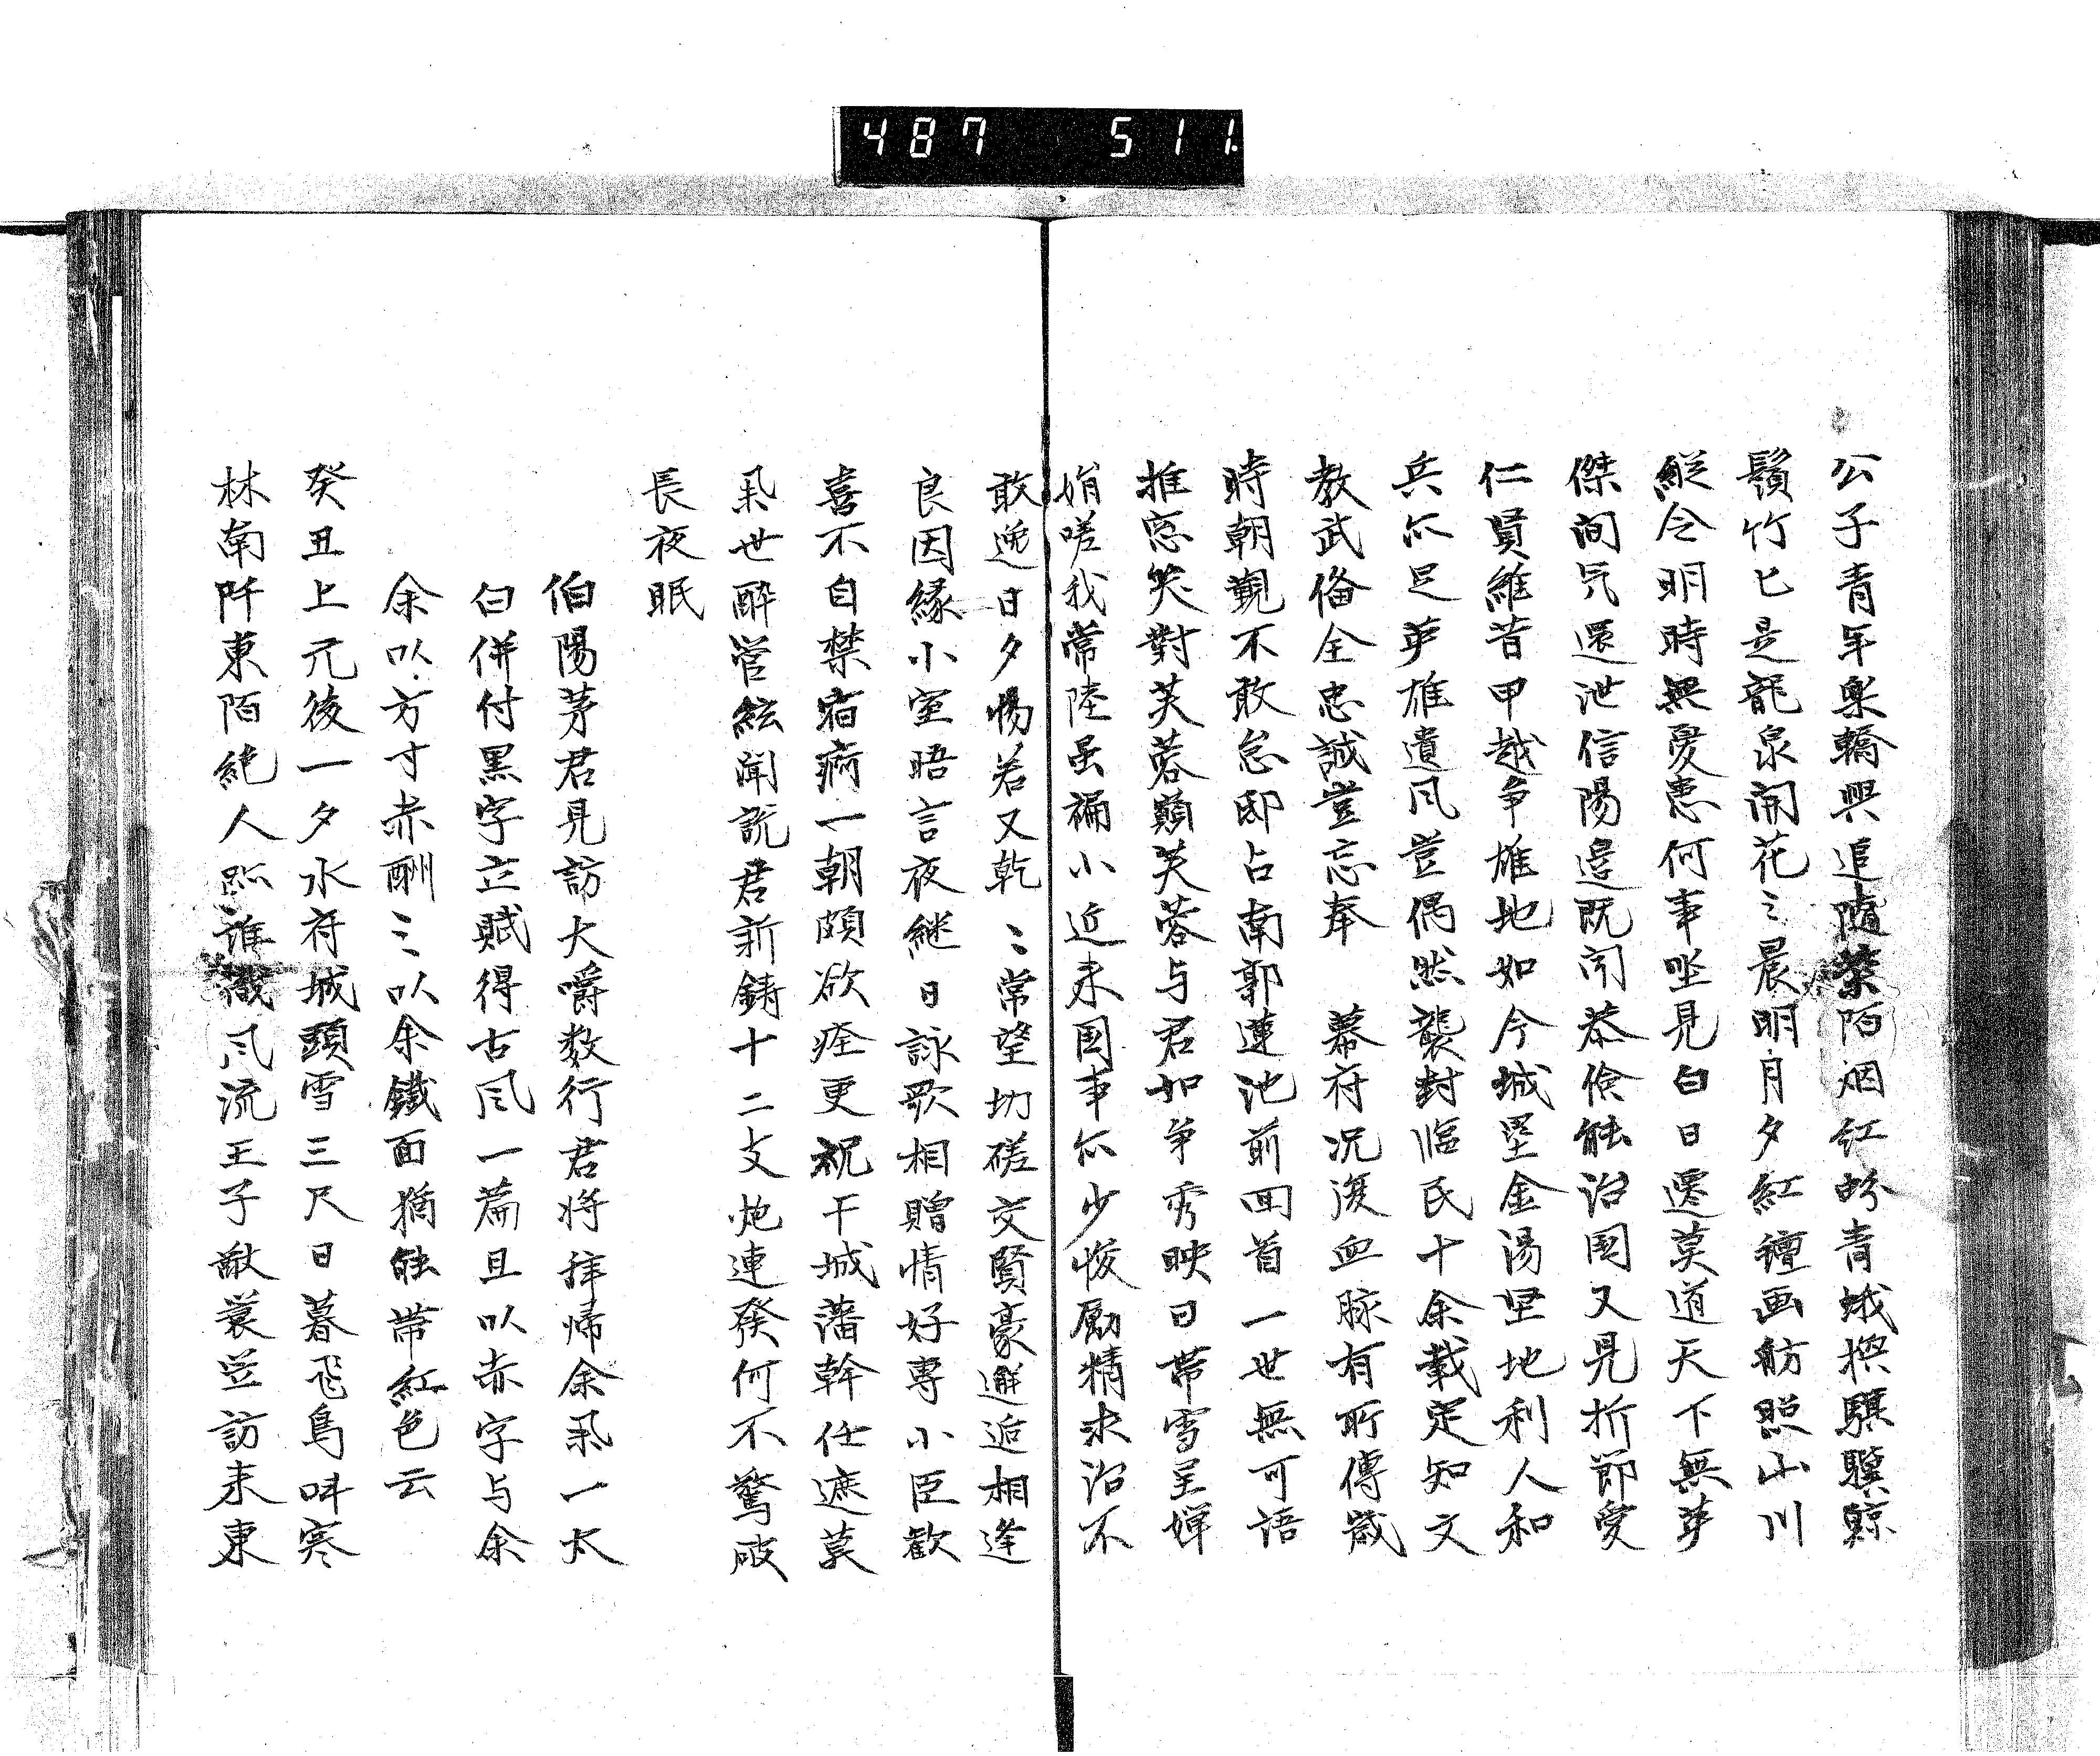 487 511.
公子青年樂驕興追隨紫陌烟紅紛青蛾撚騏驥鯨
鬚竹匕是龍泉開花之晨明月夕紅氊画舫照山川
縦令明時無憂患何事坐見白日遷莫道天下無英
傑间気還泄信陽邊既闻恭倹能治国又見折節愛
仁賢維昔甲越争雄地如今城塁金湯堅地利人和
兵亦足英雄遺風豈偶然襲封臨民十余載定知文
教武備全忠誠豈忘奉 幕府况復血脉有所傳歳
時朝覲不敢怠邸占南郭蓮池前回首一世無可語
推窓笑對芙蓉顛芙蓉与君如争秀映日帯雪呈嬋
娟嗟我常陸虽褊小近来国事亦少悛励精求治不
敢逸日夕惕若又乾〻常望切磋交賢豪邂逅相逢
良因縁小室晤言夜継日詠歌相贈情好專小臣歓
喜不自禁宿痾一朝頗欲痊更祝干城藩幹任遮莫
挙世醉管絃闻説君新鋳十二支炮連發何不驚破
長夜眠
伯陽茅君見訪大嚼数行君将拝帰余挙一大
白併付黒字立賦得古風一篇且以赤字与余
余以方寸赤酬〻以余鐵面猶能帯紅色云
癸丑上元後一夕水府城頭雪三尺日暮飛鳥呌寒
林南阡東陌絶人跡誰識風流王子猷蓑笠訪来東